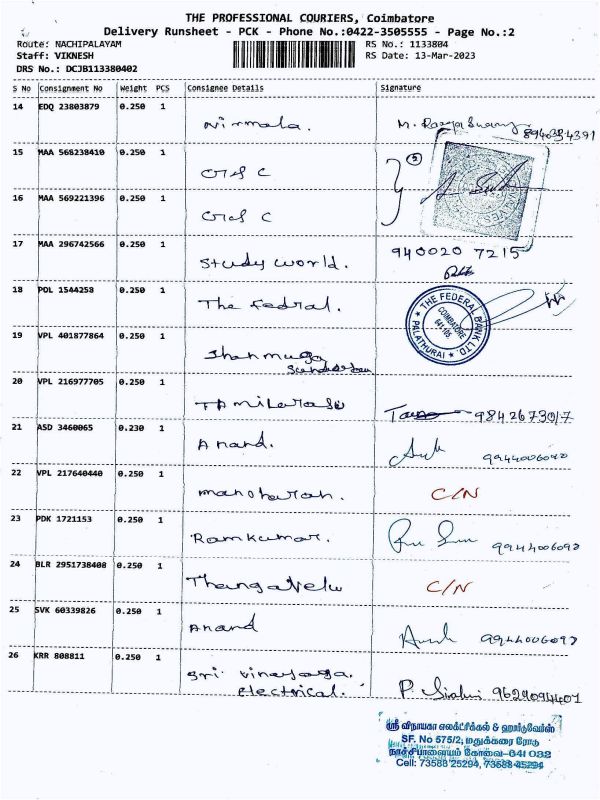 THE PROFESSIONAL COURIERS, Coimbatore
Delivery Runsheet - PCK - Phone No.:0422-3505555 - Page No.:2
Route: NACHIPALAYAM RS No.: 1133804
Staff: VIKNESH RS Date: 13-Mar-2023
DRS No.: DCJB113380402
S No Consignment No Weight PCS Consignee Details Signature
14 EDQ 23803879 0.250 1
Nirmala.
15 MAA 568238410 0.250 1
16 MAA 569221396 0.250 1
17 MAA 296742566 0.250 1
Study world. 940020 7215
18 POL 1544258 0.250 1
The Fedral.
THE FEDERAL BANK LTD.
COIMBATORE
641105
PALATHURAI
19 VPL 401877864 0.250 1
Shanmuga
20 VPL 216977705 0.250 1
Tamilarasu
21 ASD 3460065 0.230 1
Anand.
22 VPL 217640440 0.250 1
manoharan. C/N
23 PDK 1721153 0.250 1
Ramkumar.
24 BLR 2951738408 0.250 1
Thangavelu C/N
25 SVK 60339826 0.250 1
Anand
26 KRR 808811 0.250 1
Sri vinayaga.
electrical. 9629094407
ஸ்ரீ விநாயகா எலக்ட்ரிக்கல் & ஹார்டுவேர்ஸ்
SF. No 575/2, மதுக்கரை ரோடு
நாச்சிபாளையம் கோவை-641 032
Cell: 73588 25294, 73588 45294